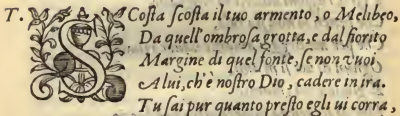 T. SCosta scosta il tuo armento, o Melibeo,
Da quell'ombrosa grotta, e dal fiorito
Margine di quel fonte, se non vuoi
A lui, ch'è nostro Dio, cadere in ira.
Tu sai pur quanto presto egli ui corra,